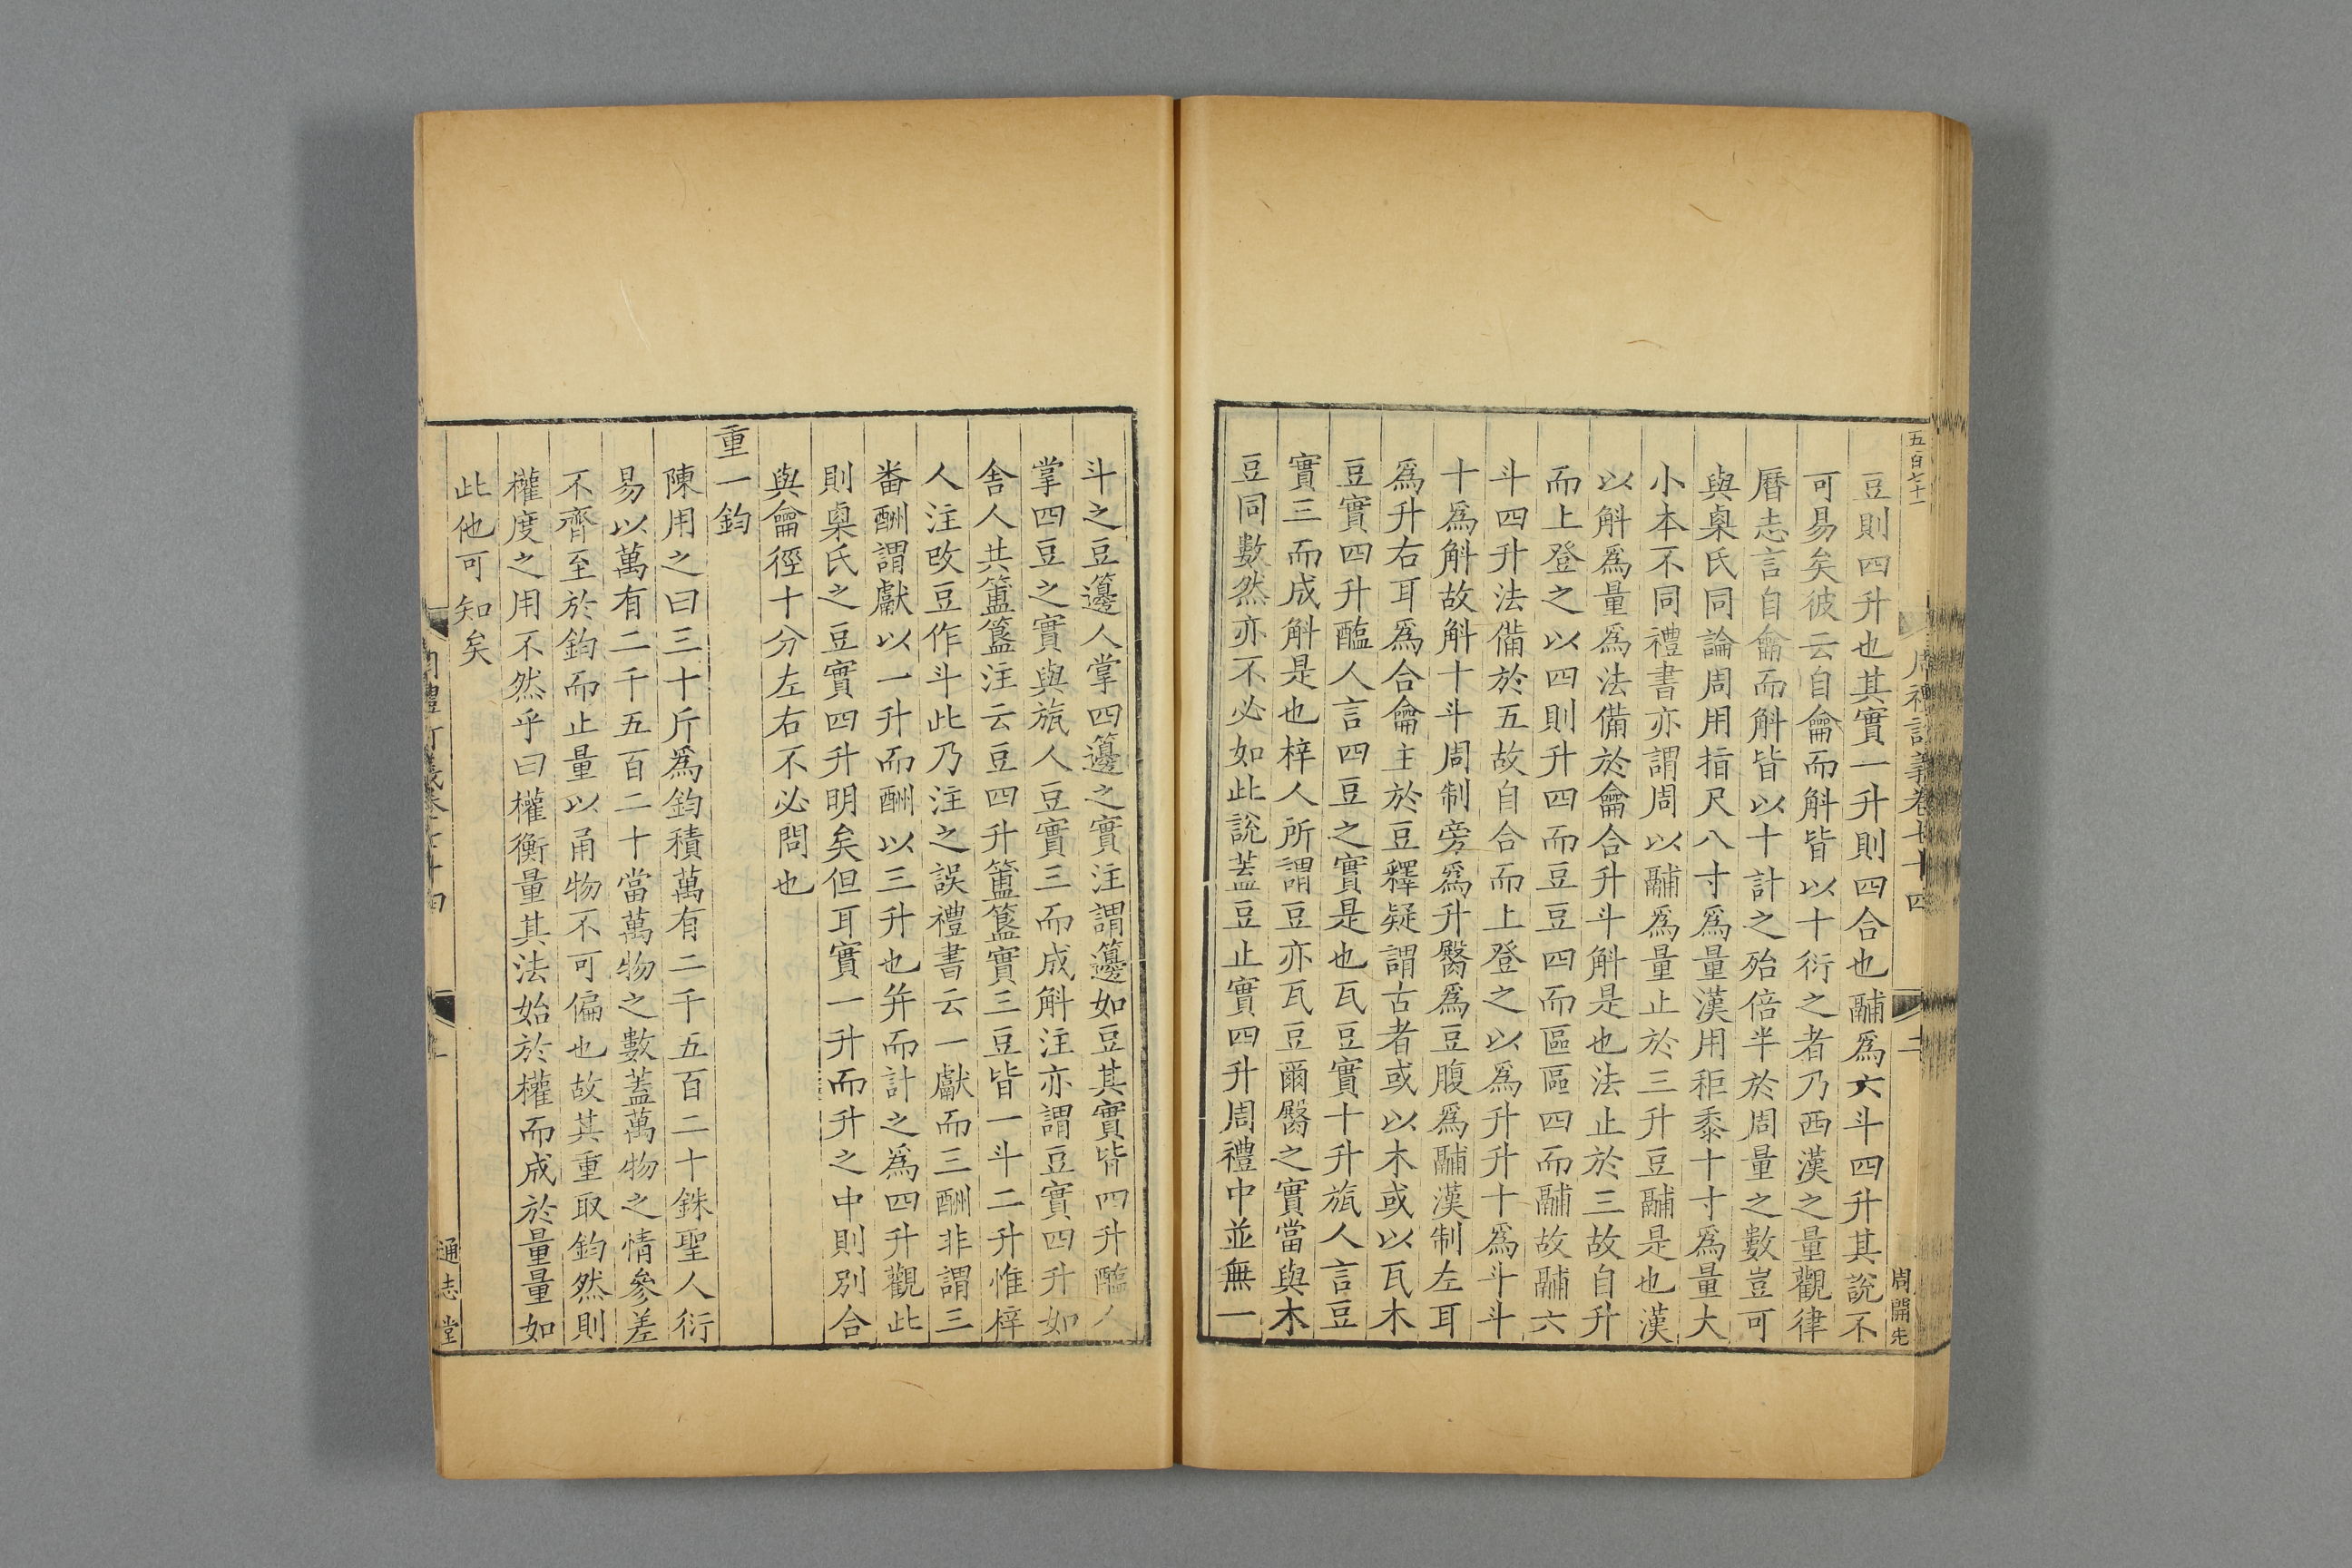 五百七十一
周禮訂義卷七十四
二
周開先
豆則四升也其實一升則四合也鬴爲六斗四升其說不
可易矣彼云自龠而斛皆以十衍之者乃西漢之量觀律
曆志言自龠而斛皆以十計之殆倍半於周量之數豈可
與㮚氏同論周用指尺八寸爲量漢用秬黍十寸爲量大
小本不同禮書亦謂周以鬴爲量止於三升豆鬴是也漢
以斛爲量爲法備於龠合升斗斛是也法止於三故自升
而上登之以四則升四而豆豆四而區區四而鬴故鬴六
斗四升法備於五故自合而上登之以爲升升十爲斗斗
十爲斛故斛十斗周制旁爲升臀爲豆腹爲鬴漢制左耳
爲升右耳爲合龠主於豆釋疑謂古者或以木或以瓦木
豆實四升醢人言四豆之實是也瓦豆實十升旊人言豆
實三而成斛是也梓人所謂豆亦瓦豆爾臀之實當與木
豆同數然亦不必如此說蓋豆止實四升周禮中並無一
斗之豆籩人掌四籩之實注謂籩如豆其實皆四升醢人
掌四豆之實與旊人豆實三而成斛注亦謂豆實四升如
舍人共簠簋注云豆四升簠簋實三豆皆一斗二升惟梓
人注改豆作斗此乃注之誤禮書云一獻而三酬非謂三
番酬謂獻以一升而酬以三升也并而計之爲四升觀此
則㮚氏之豆實四升明矣但耳實一升而升之中則別合
與龠徑十分左右不必問也
重一鈞
陳用之曰三十斤爲鈞積萬有二千五百二十銖聖人衍
易以萬有二千五百二十當萬物之數蓋萬物之情參差
不齊至於鈞而止量以甬物不可偏也故其重取鈞然則
權度之用不然乎曰權衡量其法始於權而成於量量如
此他可知矣
通志堂